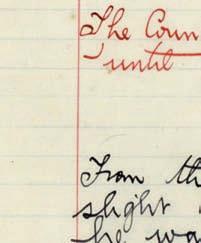 The Coun
until
From th
slight
he wa